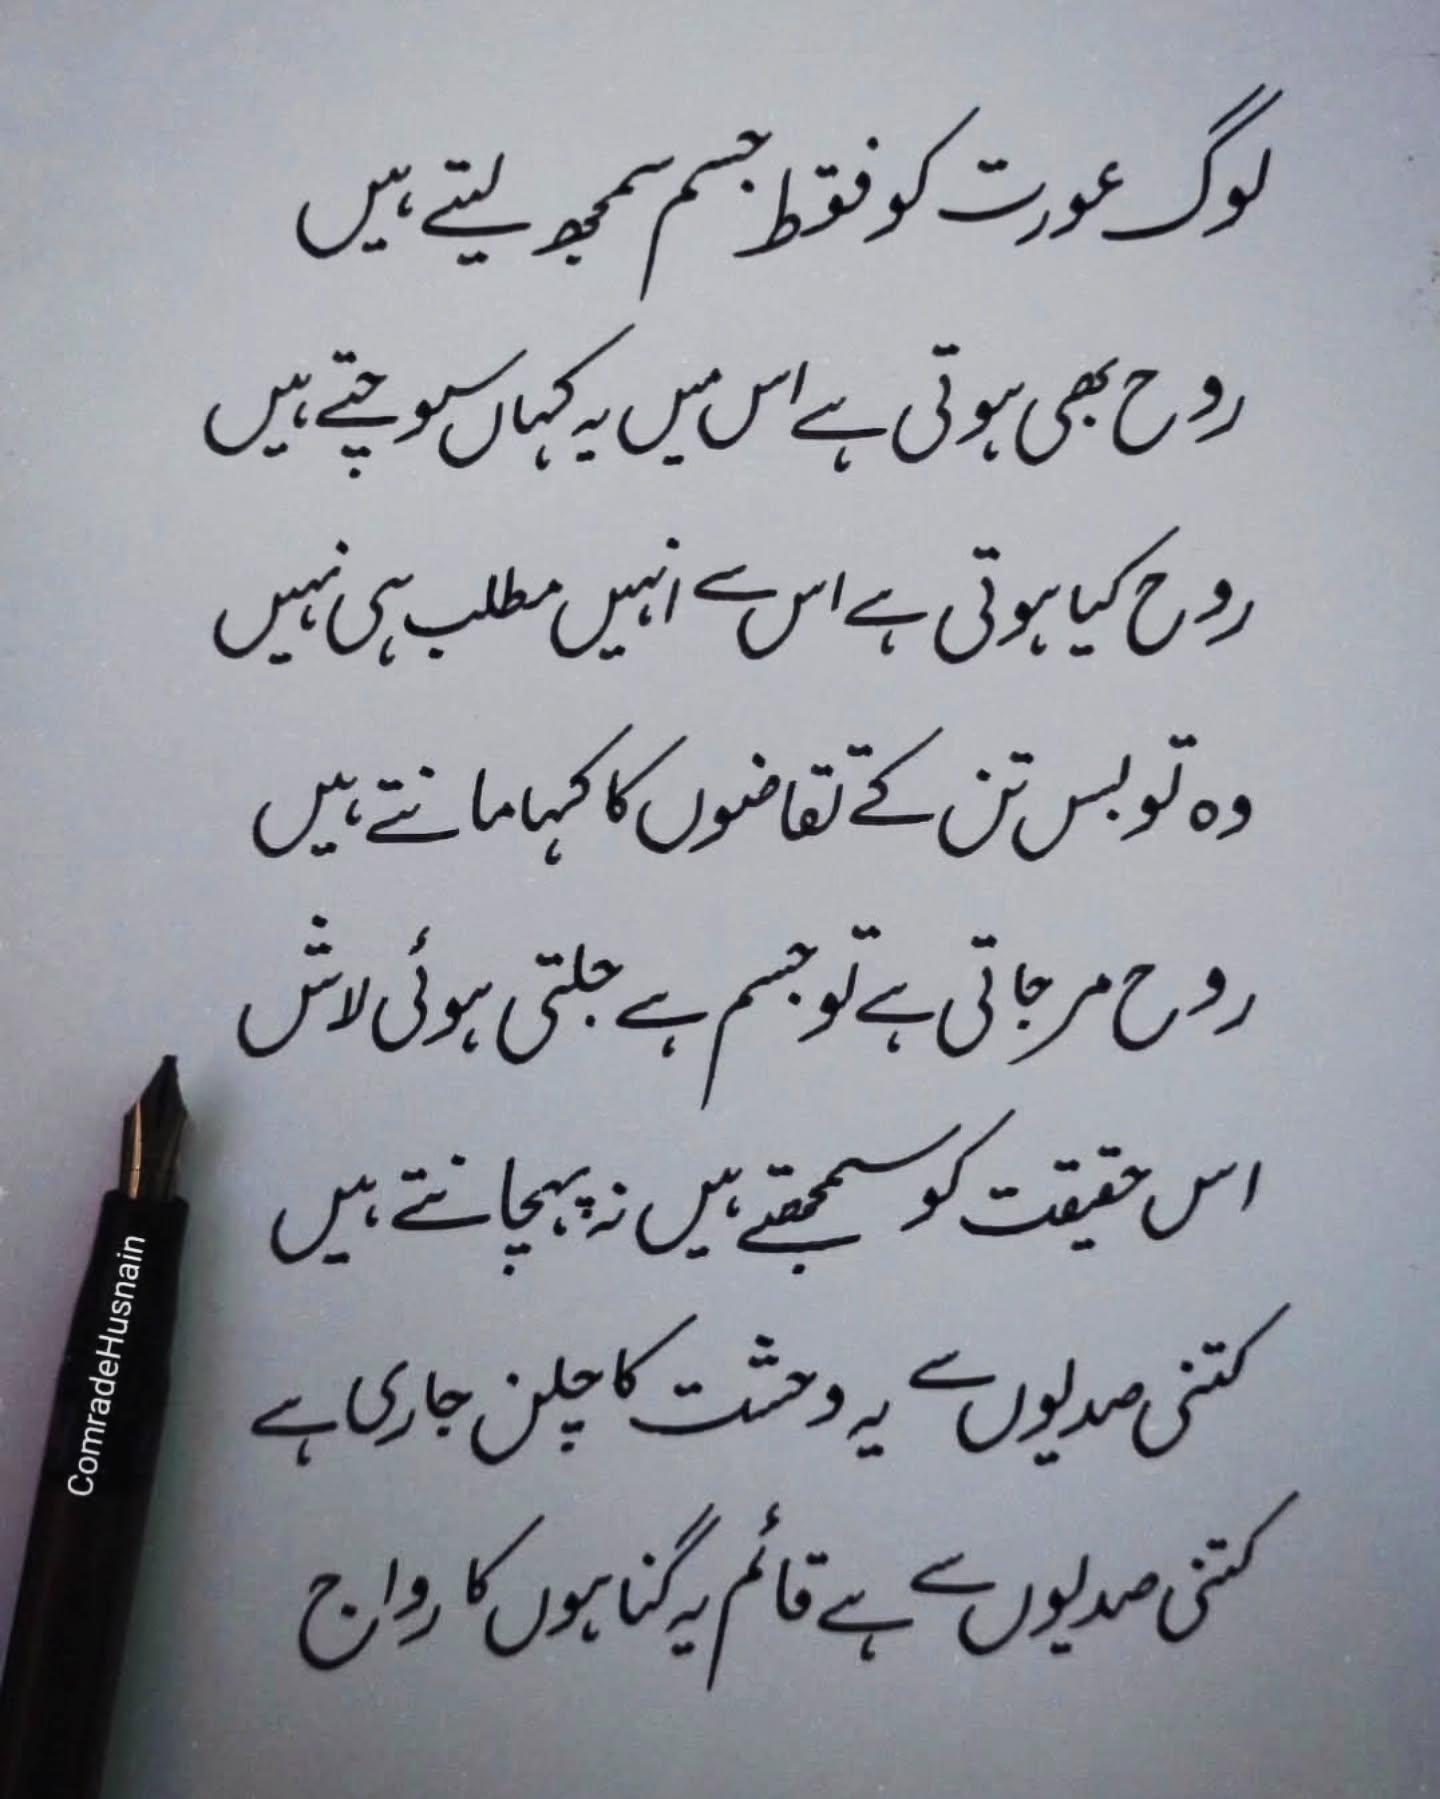 لوگ عورت کو فقط جسم سمجھ لیتے ہیں
روح بھی ہوتی ہے اس میں یہ کہاں سوچتے ہیں
روح کیا ہوتی ہے اس سے انہیں مطلب ہی نہیں
وہ تو بس تن کے تقاضوں کا کہا مانتے ہیں
روح مر جاتی ہے تو جسم ہے جلتی ہوئی لاش
اس حقیقت کو سمجھتے ہیں نہ پہچانتے ہیں
کتنی صدیوں سے یہ وحشت کا چلن جاری ہے
کتنی صدیوں سے ہے قائم یہ گناہوں کا رواج
ComradeHusnain